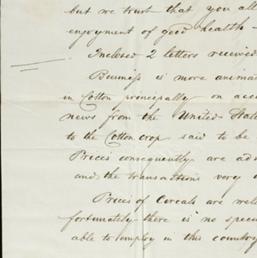 but we trust that you all
enjoyment of good health -
Inclosed 2 letters received
Business is more anima
in Cotton principally on acc
news from the United State
to the Cotton crop said to be
Prices consequently are ad
and the transactions very
Prices of Cereals are well
fortunately there is no spec
able to employ in this country